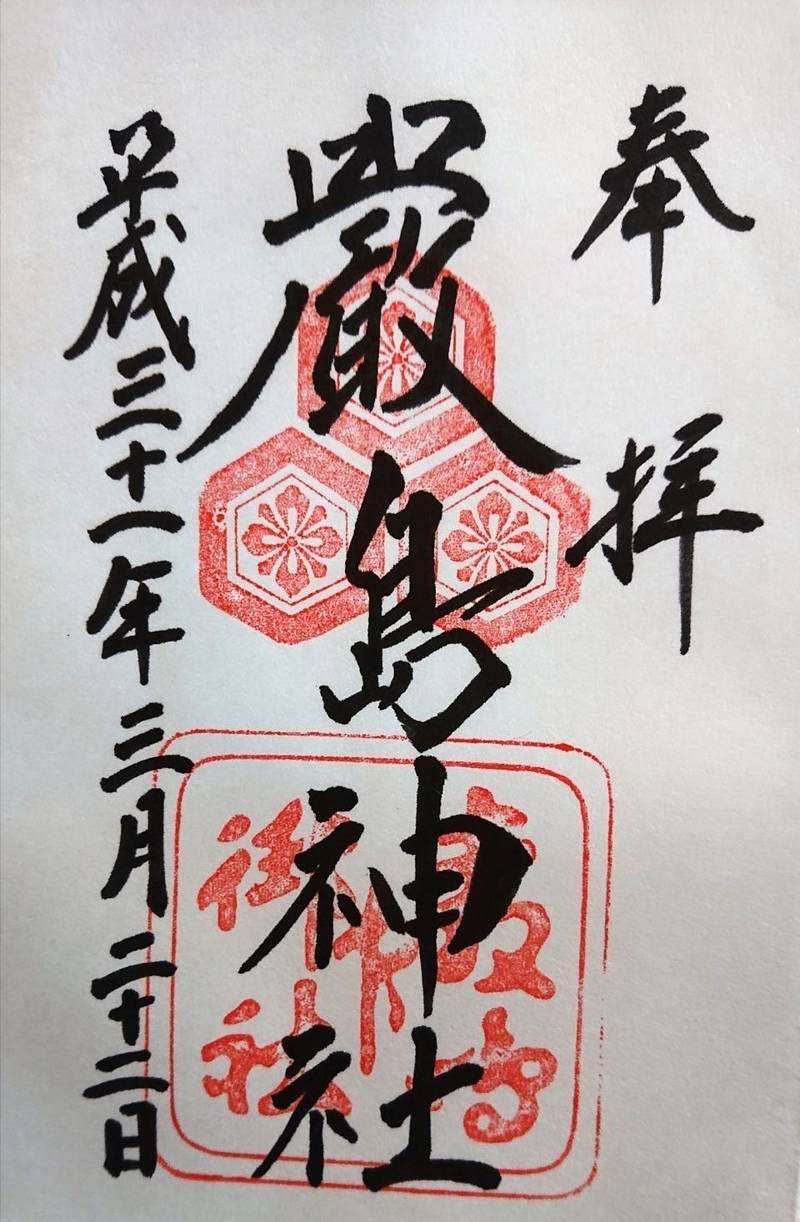 奉拝
嚴島神社
平成三十一年三月二十二日
嚴島
御社